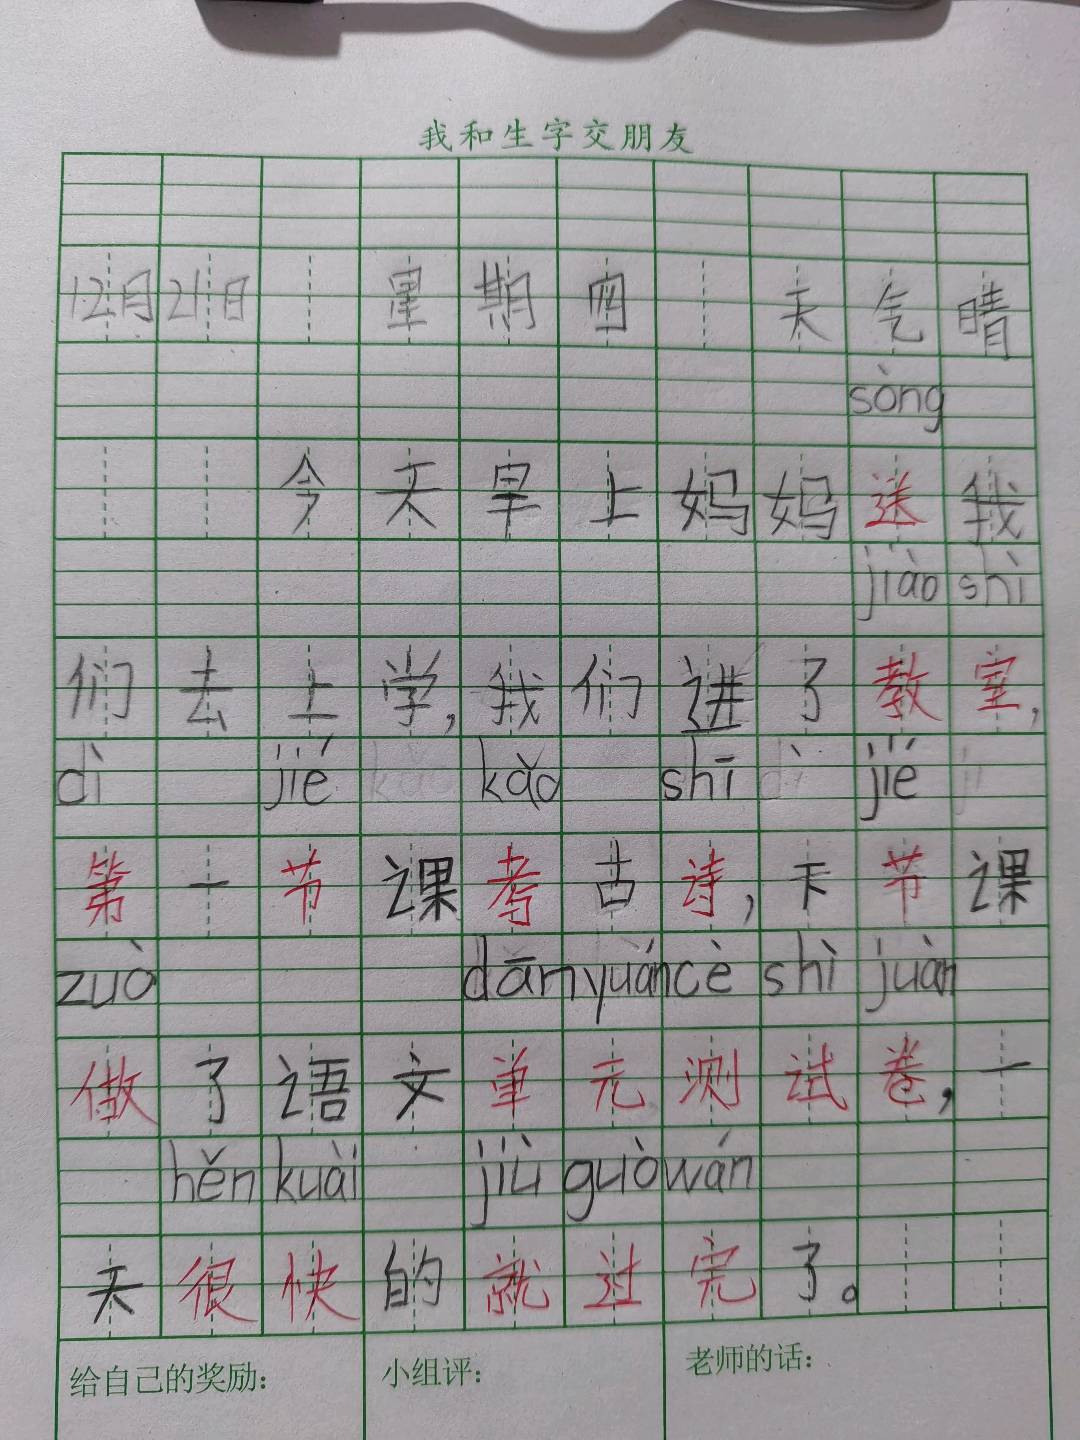 我和生字交朋友
12月21日 星期四 天气晴
sòng
今天早上妈妈送我
jiào shì
们去上学，我们进了教室，
dì jié kǎo shī jié
第一节课考古诗，下节课
zuò dān yuán cè shì juàn
做了语文单元测试卷，一
hěn kuài jiù guò wán
天很快的就过完了。
给自己的奖励： 小组评： 老师的话：